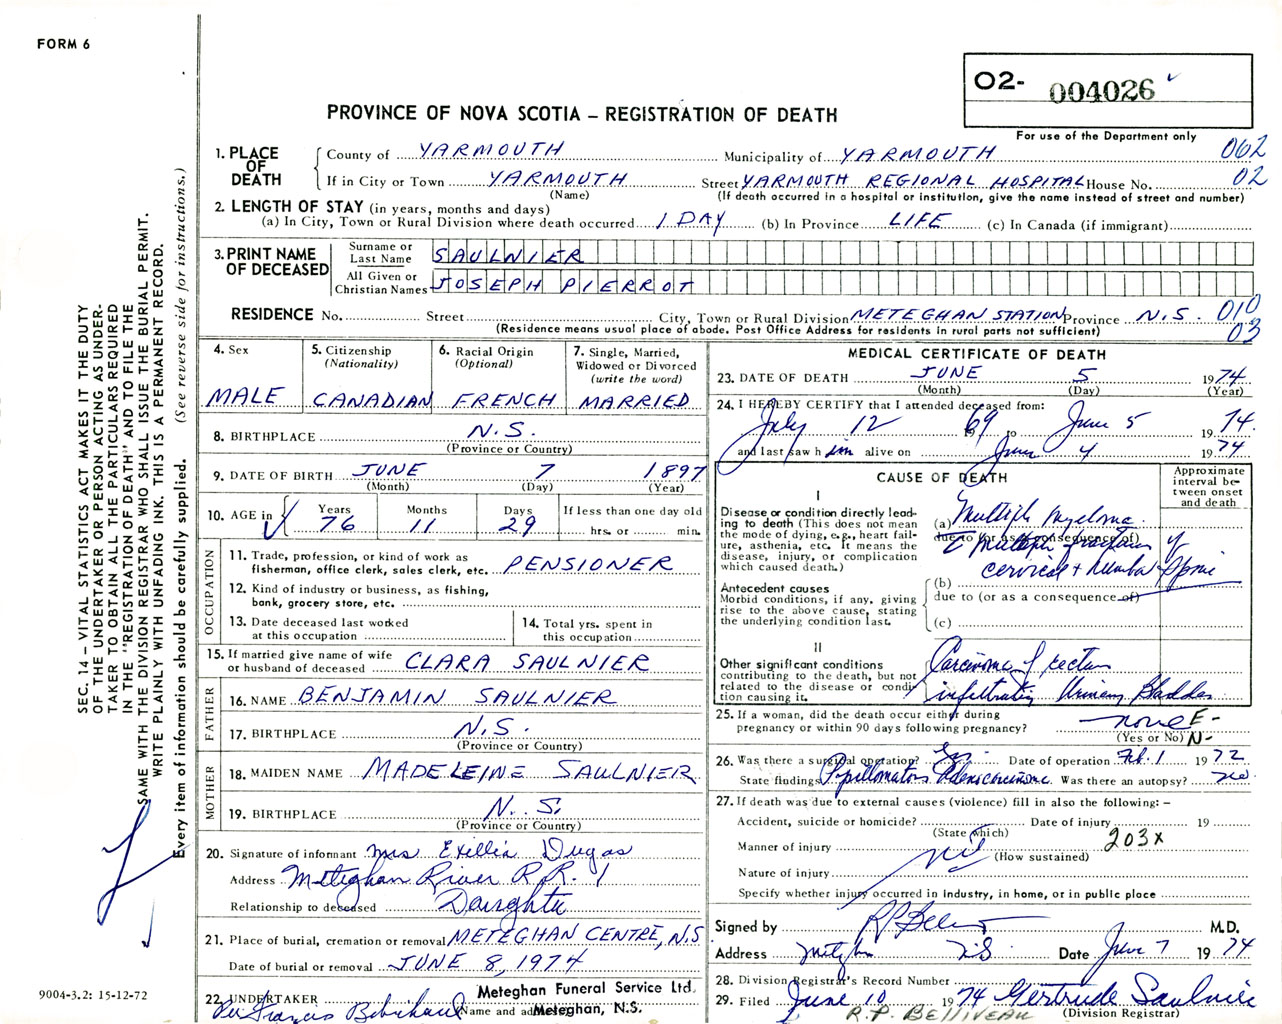 FORM 6
O2- 004026
PROVINCE OF NOVA SCOTIA – REGISTRATION OF DEATH
For use of the Department only
1. PLACE OF DEATH
County of YARMOUTH Municipality of YARMOUTH 062
If in City or Town YARMOUTH Street YARMOUTH REGIONAL HOSPITAL House No. 02
(Name) (If death occurred in a hospital or institution, give the name instead of street and number)
2. LENGTH OF STAY (in years, months and days)
(a) In City, Town or Rural Division where death occurred 1 DAY (b) In Province LIFE (c) In Canada (if immigrant)
3. PRINT NAME OF DECEASED
Surname or Last Name SAULNIER
All Given or Christian Names JOSEPH PIERROT
RESIDENCE No. Street City, Town or Rural Division METEGHAN STATION Province N.S. 010
(Residence means usual place of abode. Post Office Address for residents in rural parts not sufficient) 03
4. Sex
MALE
5. Citizenship
(Nationality)
CANADIAN
6. Racial Origin
(Optional)
FRENCH
7. Single, Married,
Widowed or Divorced
(write the word)
MARRIED
8. BIRTHPLACE N.S.
(Province or Country)
9. DATE OF BIRTH JUNE 7 1897
(Month) (Day) (Year)
10. AGE in Years Months Days If less than one day old
76 11 29 hrs. or min.
OCCUPATION
11. Trade, profession, or kind of work as
fisherman, office clerk, sales clerk, etc. PENSIONER
12. Kind of industry or business, as fishing,
bank, grocery store, etc.
13. Date deceased last worked
at this occupation
14. Total yrs. spent in
this occupation
15. If married give name of wife
or husband of deceased CLARA SAULNIER
FATHER
16. NAME BENJAMIN SAULNIER
17. BIRTHPLACE N.S.
(Province or Country)
MOTHER
18. MAIDEN NAME MADELEINE SAULNIER
19. BIRTHPLACE N.S.
(Province or Country)
20. Signature of informant Mrs Exillia Dugas
Address Meteghan River R.R. 1
Relationship to deceased Daughter
21. Place of burial, cremation or removal METEGHAN CENTRE, N.S
Date of burial or removal JUNE 8, 1974
22. UNDERTAKER Meteghan Funeral Service Ltd.
Per Francis
Name and address Meteghan, N.S.
MEDICAL CERTIFICATE OF DEATH
23. DATE OF DEATH JUNE 5 1974
(Month) (Day) (Year)
24. I HEREBY CERTIFY that I attended deceased from:
July 12 19 69 to June 5 19 74.
and last saw him alive on June 4 1974
CAUSE OF DEATH
Approximate interval between onset and death
I
Disease or condition directly lead-
ing to death (This does not mean
the mode of dying, e.g., heart fail-
ure, asthenia, etc. It means the
disease, injury, or complication
which caused death.)
(a) Multiple Myeloma
due to (or as a consequence of)
c̄ Multiple fractures of
cervical + Lumbar Spine
Antecedent causes
Morbid conditions, if any, giving
rise to the above cause, stating
the underlying condition last.
(b)
due to (or as a consequence of)
(c)
II
Other significant conditions
contributing to the death, but not
related to the disease or condi-
tion causing it.
Carcinoma of rectum
infiltrating Urinary Bladder
25. If a woman, did the death occur either during
pregnancy or within 90 days following pregnancy? none E-
(Yes or No) N-
26. Was there a surgical operation? Yes Date of operation Feb. 1 1972
State findings Papillomatous Adenocarcinoma Was there an autopsy? no
27. If death was due to external causes (violence) fill in also the following: –
Accident, suicide or homicide? Date of injury 19
(State which) 203x
Manner of injury nil (How sustained)
Nature of injury
Specify whether injury occurred in industry, in home, or in public place
Signed by RP Belliveau M.D.
Address Meteghan NS Date June 7 1974
28. Division Registrar's Record Number
29. Filed June 10 1974 Gertrude Saulnier
R.P. BELLIVEAU (Division Registrar)
SEC. 14 – VITAL STATISTICS ACT MAKES IT THE DUTY
OF THE UNDERTAKER OR PERSON ACTING AS UNDER-
TAKER TO OBTAIN ALL THE PARTICULARS REQUIRED
IN THE "REGISTRATION OF DEATH" AND TO FILE THE
SAME WITH THE DIVISION REGISTRAR WHO SHALL ISSUE THE BURIAL PERMIT.
WRITE PLAINLY WITH UNFADING INK. THIS IS A PERMANENT RECORD.
Every item of information should be carefully supplied. (See reverse side for instructions.)
9004-3.2: 15-12-72